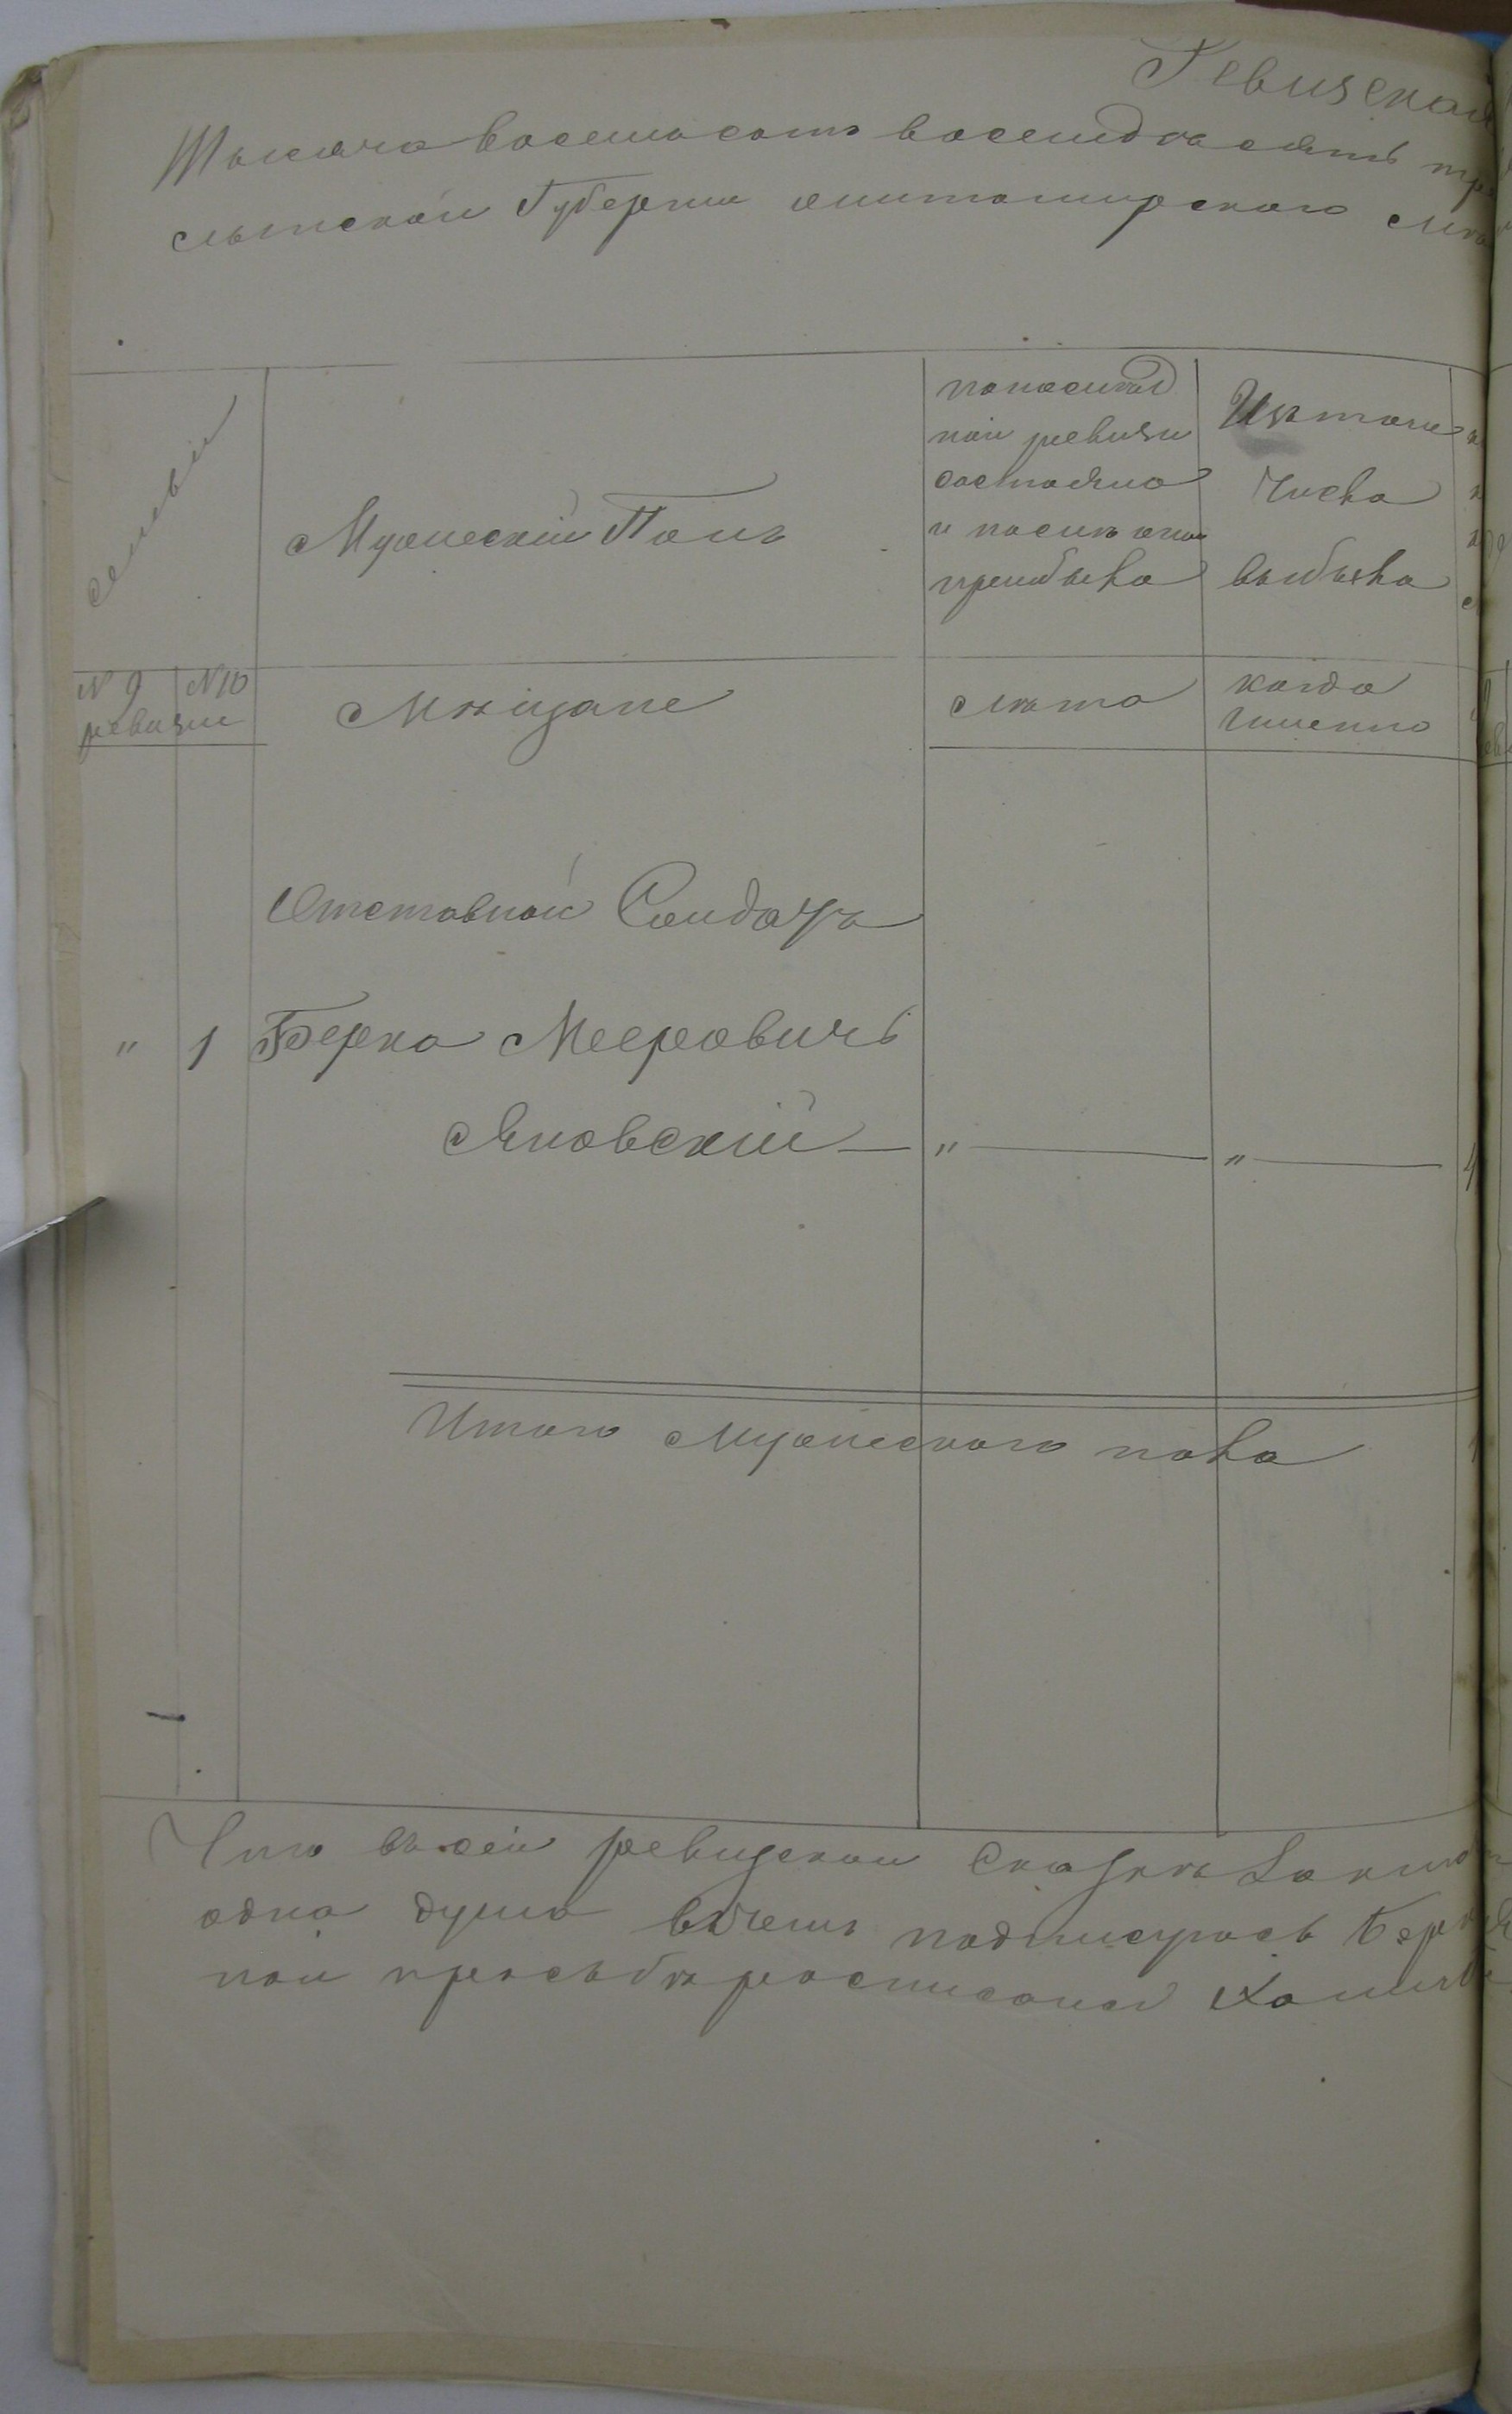 Ревизская
Тысяча восемьсотъ восемдесятъ тре
лынской Губернии житомирского
семьи
Мужескій Полъ
по послед
ней ревизи
состояло
и после оной
прибыло
Изтого
числа
выбыло
№ 9 №10
ревизии
Мѣщане
Лѣта
когда
именно
Отставной Солдатъ
" 1 Берко Мееровичъ
Яновскій — " — " —
Итого мужеского пола
Что въ сей ревизской сказке
одна душа въ чемъ подписуюсь Берко
ной просьбѣ росписался Хаим